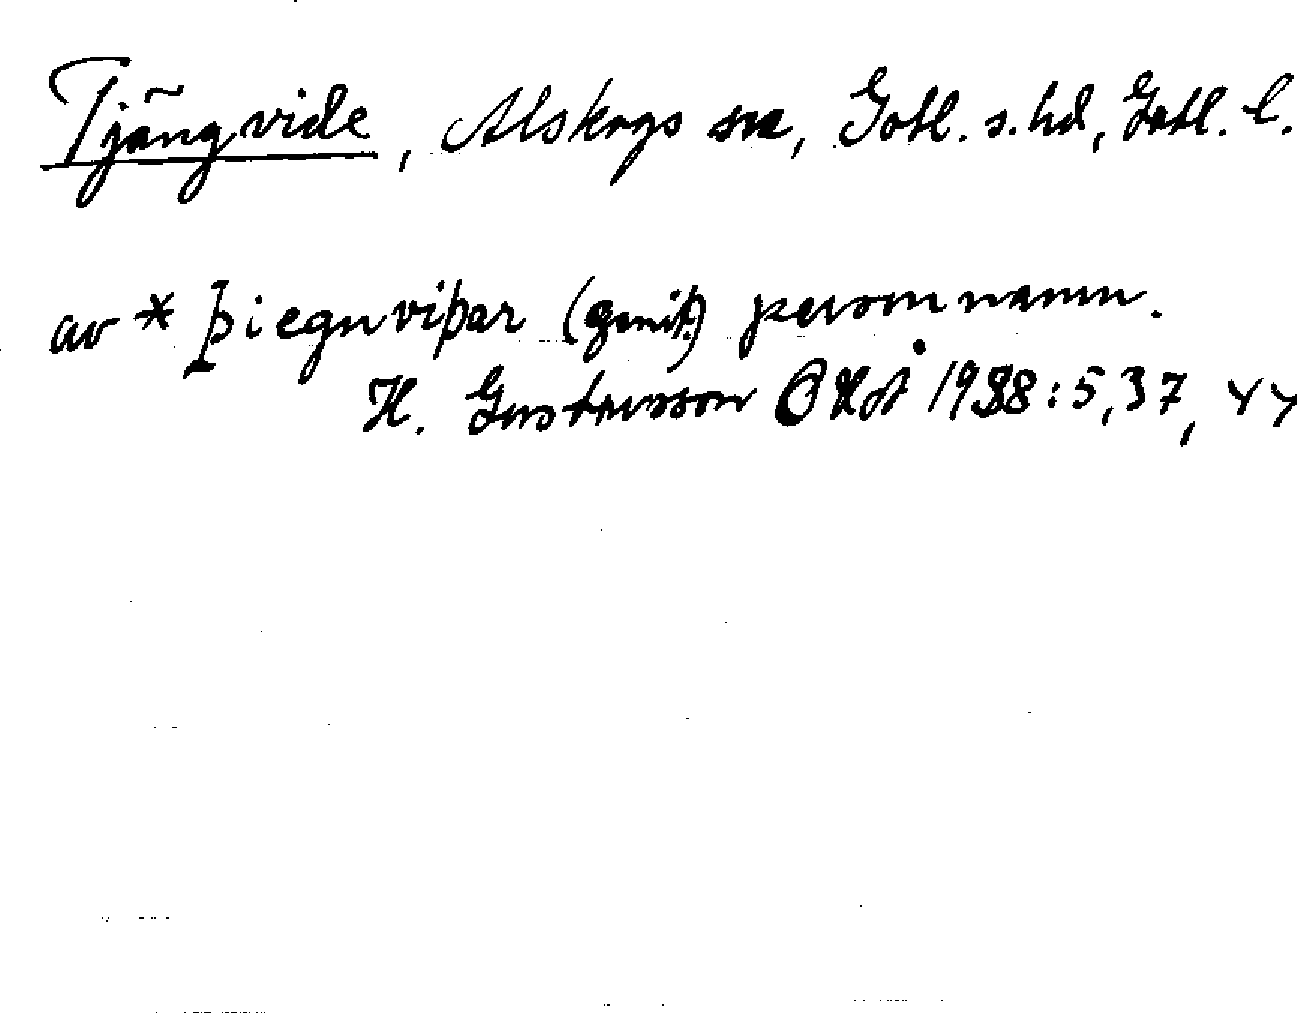 Tjängvide, Alskogs sn, Gotl. s. hd, Gotl. l.
av * þiegnviþar (genit.) personnamn.
H. Gustavson 1988:5,37, 44